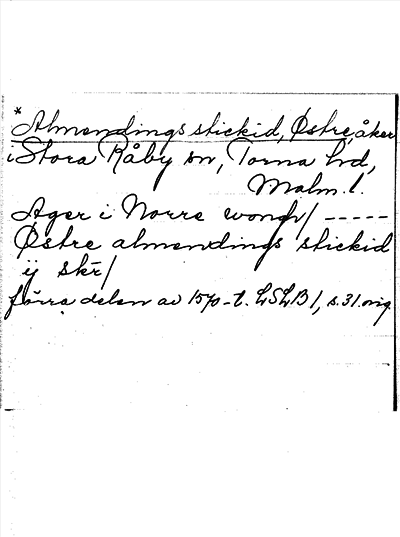 *
Almendings stickid, Østre, åker
i Stora Råby sn, Torna hd,
Malm. l.
Ager i Norre wongh/ -----
Østre almendings stickid
ij skr/
förra delen av 1570-t. LSLB 1, s. 31. orig.